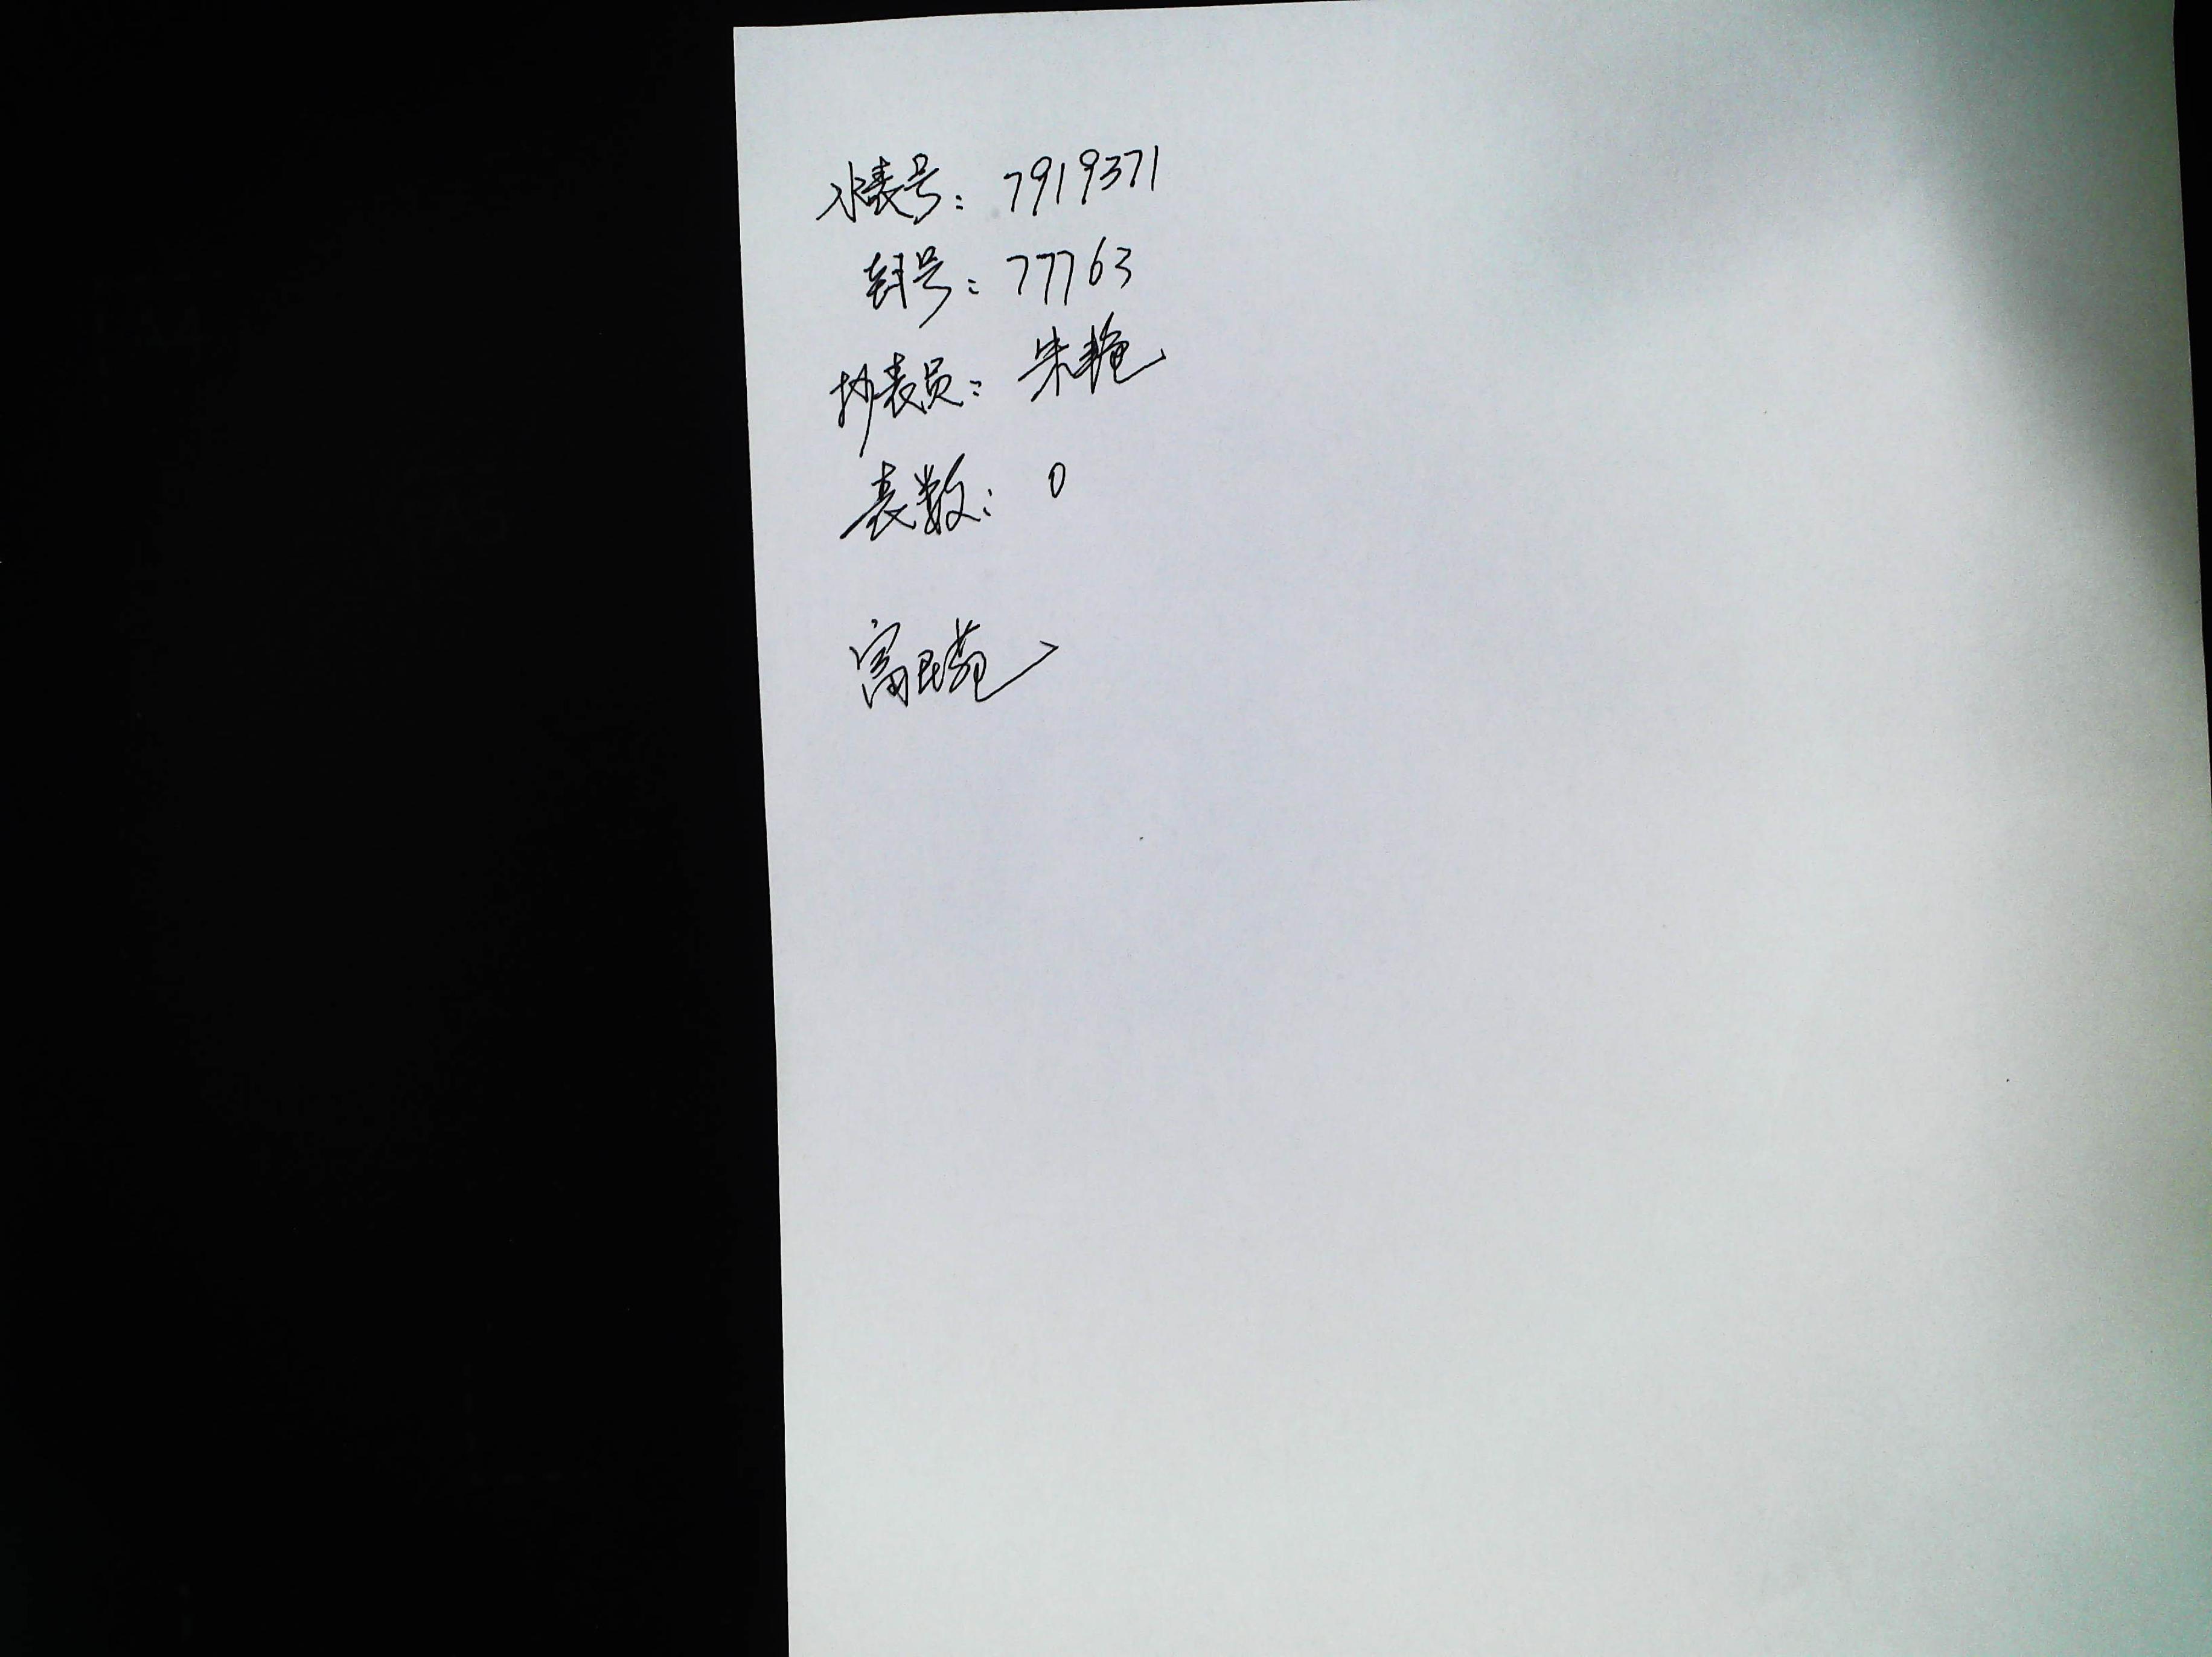 水表号：7919371
钢号：77763
抄表员：朱艳
表数：0
富民苑